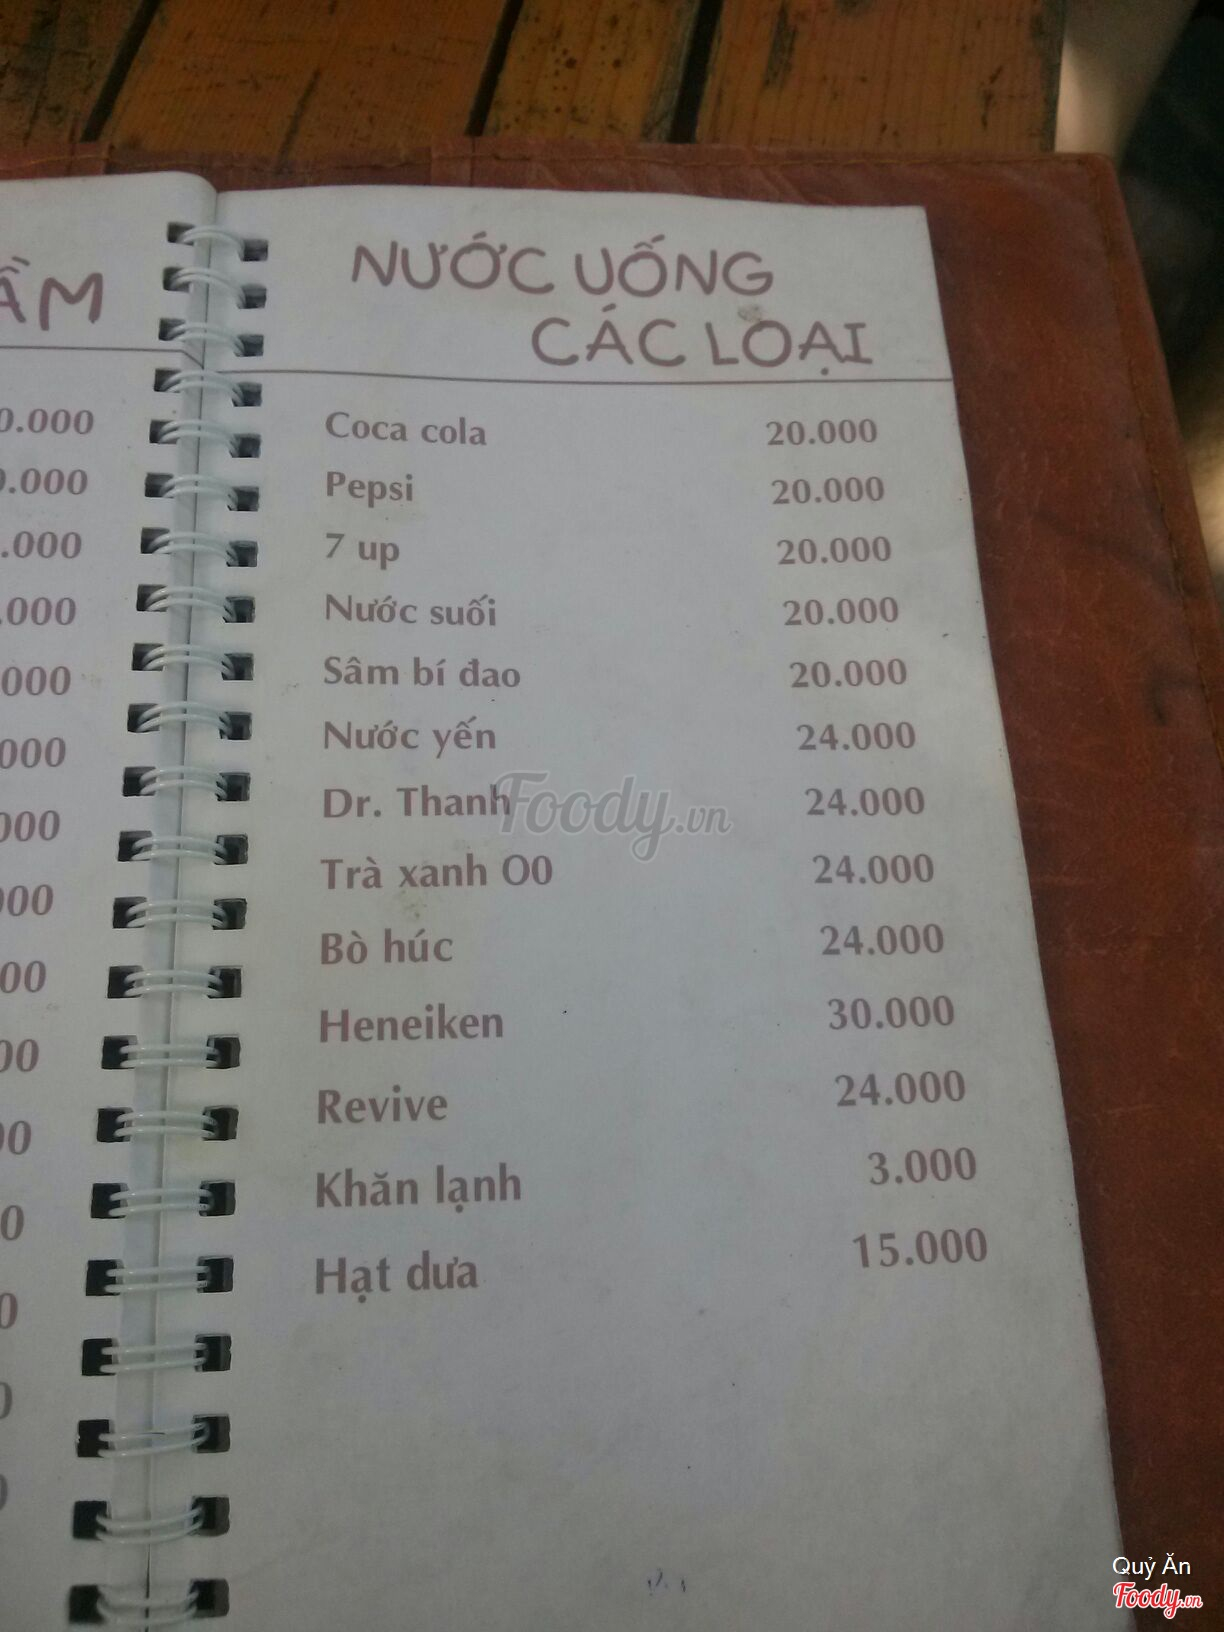 NƯỚC UỐNG
CÁC LOẠI
Coca cola 20.000
Pepsi 20.000
7 up 20.000
Nước suối 20.000
Sâm bí đao 20.000
Nước yến 24.000
Dr. Thanh 24.000
Trà xanh O0 24.000
Bò húc 24.000
Heneiken 30.000
Revive 24.000
Khăn lạnh 3.000
Hạt dưa 15.000
Foody.vn
Quỷ Ăn
Foody.vn